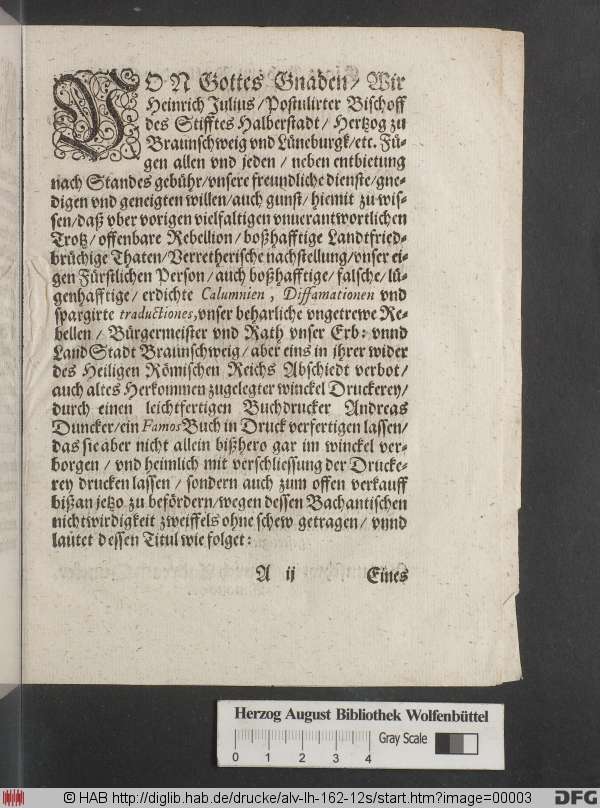 VON Gottes Gnaden / Wir
Heinrich Julius / Postulirter Bischoff
des Stifftes Halberstadt / Hertzog zu
Braunschweig vnd Lüneburgk / etc. Fü-
gen allen vnd jeden / neben entbietung
nach Standes gebühr / vnsere freundliche dienste / gne-
digen vnd geneigten willen / auch gunst / hiemit zu wis-
sen / daß vber vorigen vielfaltigen vnuerantwortlichen
Trotz / offenbare Rebellion / boßhafftige Landtfried-
brüchige Thaten / Verretherische nachstellung / vnser ei-
gen Fürstlichen Person / auch boßhafftige / falsche / lü-
genhafftige / erdichte Calumnien, Diffamationen vnd
spargirte traductiones, vnser beharliche vngetrewe Re-
bellen / Bürgermeister vnd Rath vnser Erb: vnnd
LandStadt Braunschweig / aber eins in ihrer wider
des Heiligen Römischen Reichs Abschiedt verbot /
auch altes Herkommen zugelegter winckel Druckerey /
durch einen leichtfertigen Buchdrucker Andreas
Duncker / ein Famos Buch in Druck verfertigen lassen /
das sie aber nicht allein bißhero gar im winckel ver-
borgen / vnd heimlich mit verschliessung der Drucke-
rey drucken lassen / sondern auch zum offen verkauff
biß an jetzo zu befördern / wegen dessen Bachantischen
nichtwirdigkeit zweiffels ohne schew getragen / vnnd
lautet dessen Titul wie folget:
A ij Eines
Herzog August Bibliothek Wolfenbüttel
0 1 2 3 4 Gray Scale
© HAB http://diglib.hab.de/drucke/alv-lh-162-12s/start.htm?image=00003
DFG